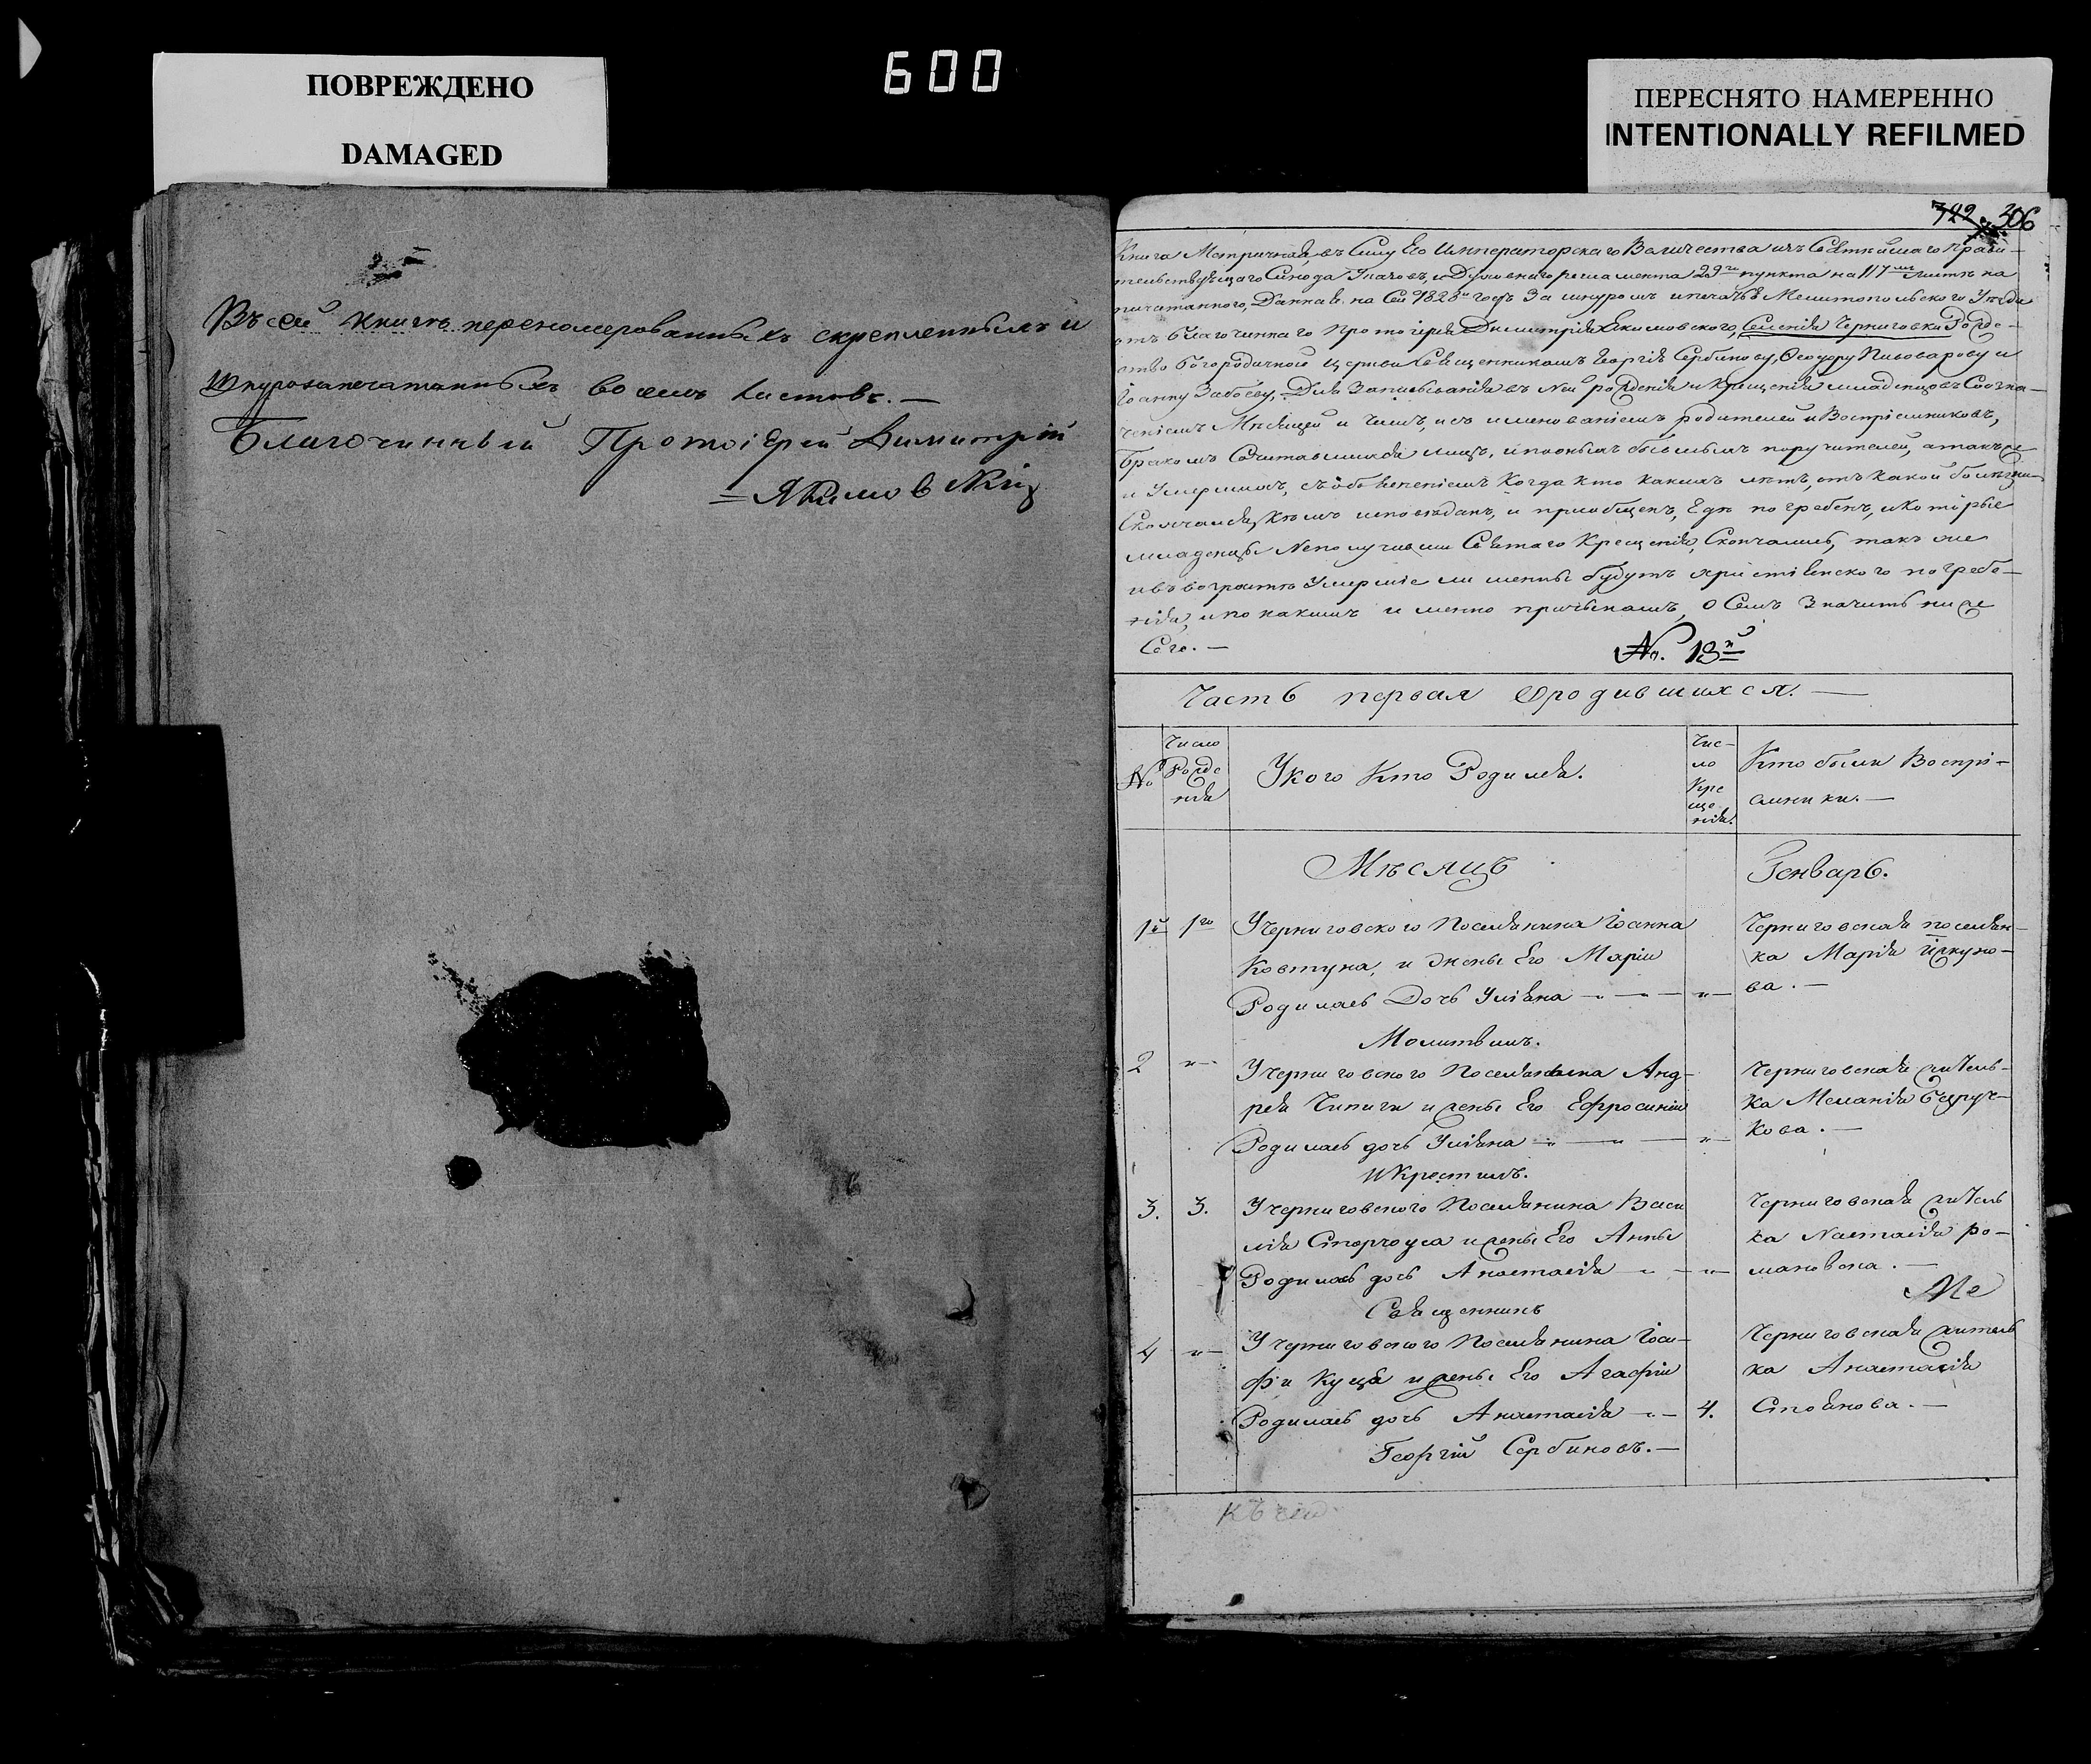 600
ПОВРЕЖДЕНО
DAMAGED
ПЕРЕСНЯТО НАМЕРЕННО
INTENTIONALLY REFILMED
Въ сей книгѣ переномерованныхъ скрепленныхъ и
шнурозапечатанныхъ восемь листовъ. —
Благочинный Протоіерей Димитрій
= Якимовскій
322. 306
Книга Метричная, въ Силу Его Императорскаго Величества изъ Святѣйшаго Прави-
тельствующаго Синода Указовъ, и Духовнаго регламента 29го пункта на 117мъ листѣ на
печатанного, Данная на Сей 1828й годъ За шнуромъ и печатью Мелитопольского Уезда
отъ благочинного Протоіерея Димитрія Екимовского, Селенія Черниговки Рожде-
ство Богородичной церкви Священникамъ Георгію Сербинову, Феодору Пивоварову и
Іоанну Забоеву, Для Записыванія въ Ней рожденія и Крещенія младенцовъ Со озна-
ченіемъ Месяцей и Числъ, и съ именованіемъ родителей и Воспріемниковъ,
Бракомъ Сочитавшихся лицъ, и по оныхъ бывшыхъ поручителей, а также
и Умершихъ, съ объявленіемъ Когда Кто какихъ летъ, отъ какой болезни
Скончался, Кемъ исповеданъ, и приобщенъ, Где погребенъ, и которые
младенцы Неполучивши Святаго Крещенія, Скончались, такъ же
и въ возрасте Умершіе лишенны будутъ христіянского погребе-
нія, и по какимъ именно причинамъ, о Семъ Значитъ ниже
Сего. —
No. 13й
Часть первая о родившихся. —
No
Число Рожде нія
У кого Кто Родился.
Чис- ло Кре ще нія.
Кто были Воспрі-
емники. —
Мѣсяцъ
Генварь.
1й 1го У Черниговского Поселянина Іоанна
Ковтуна, и жены Его Маріи
Родилась Дочь Уліяна — „ — „ —
Черниговская поселян-
ка Марія
ва. —
Молитвилъ.
2 „— У Черниговского Поселянина Анд-
рея Чипиги и жены Его Ефросиніи
Родилась дочь Уліяна — „ — „ —
Черниговская житель-
ка Меланія
кова. —
И Крестилъ.
3. 3. У Черниговского Поселянина Васи
лія Сторчоуса и жены Его Анны
Родилась дочь Анастасія — „ — „ —
Черниговская житель
ка Настасія ро-
мановена. —
Ме
Священникъ
4 „— У Черниговского Поселянина Іоси-
фа Куща и жены Его Агафіи
Родилась дочь Анастасія — „ — 4.
Черниговская житель
ка Анастасія
Стоянова. —
Георгій Сербиновъ. —